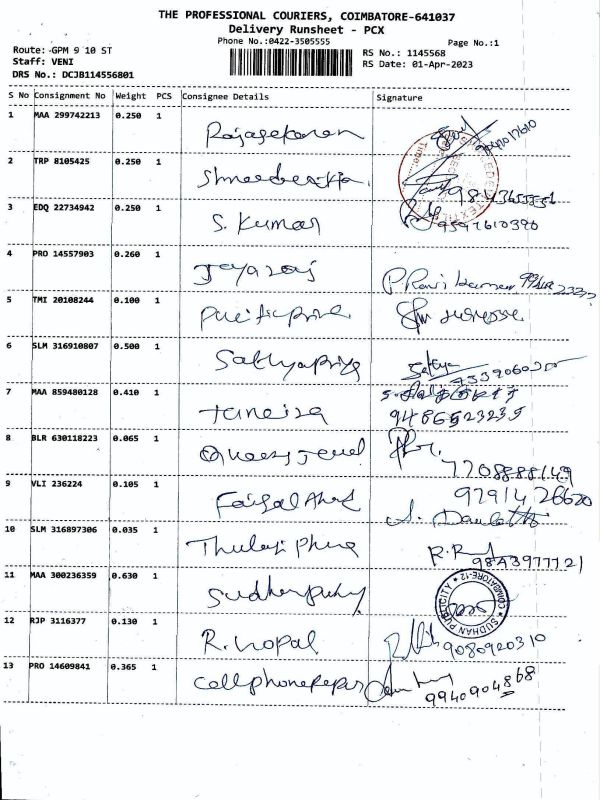 THE PROFESSIONAL COURIERS, COIMBATORE-641037
Delivery Runsheet - PCX
Phone No.:0422-3505555 Page No.:1
Route: GPM 9 10 ST RS No.: 1145568
Staff: VENI RS Date: 01-Apr-2023
DRS No.: DCJB114556801
S No Consignment No Weight PCS Consignee Details Signature
1 MAA 299742213 0.250 1
Rajasekaran
2 TRP 8105425 0.250 1
3 EDQ 22734942 0.250 1
S. Kumar 9597610390
4 PRO 14557903 0.260 1
Jeyaraj P. Ravi Kumar
5 TMI 20108244 0.100 1
Pacific prive
6 SLM 316910807 0.500 1
Sathyapriya Sathya
7339060205
7 MAA 859480128 0.410 1
Taneira 9486523235
8 BLR 630118223 0.065 1
Queens Jewel 7708888149
9 VLI 236224 0.105 1 9791426620
Faisal Ahmed
10 SLM 316897306 0.035 1
9843977121
11 MAA 300236359 0.630 1
SUDHAN PUBLICITY * COIMBATORE-12 *
12 RJP 3116377 0.130 1
R. nopal 9080920310
13 PRO 14609841 0.365 1
Cellphone repair 9940904868